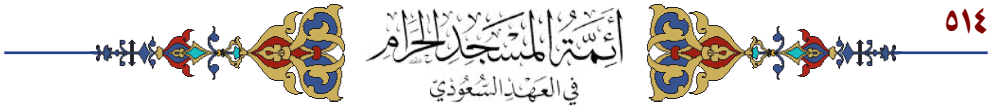 ٥١٤
أَئِمَّةُ المَسْجِدِ الحَرَامِ
في العَهْدِ السُّعُودِيّ